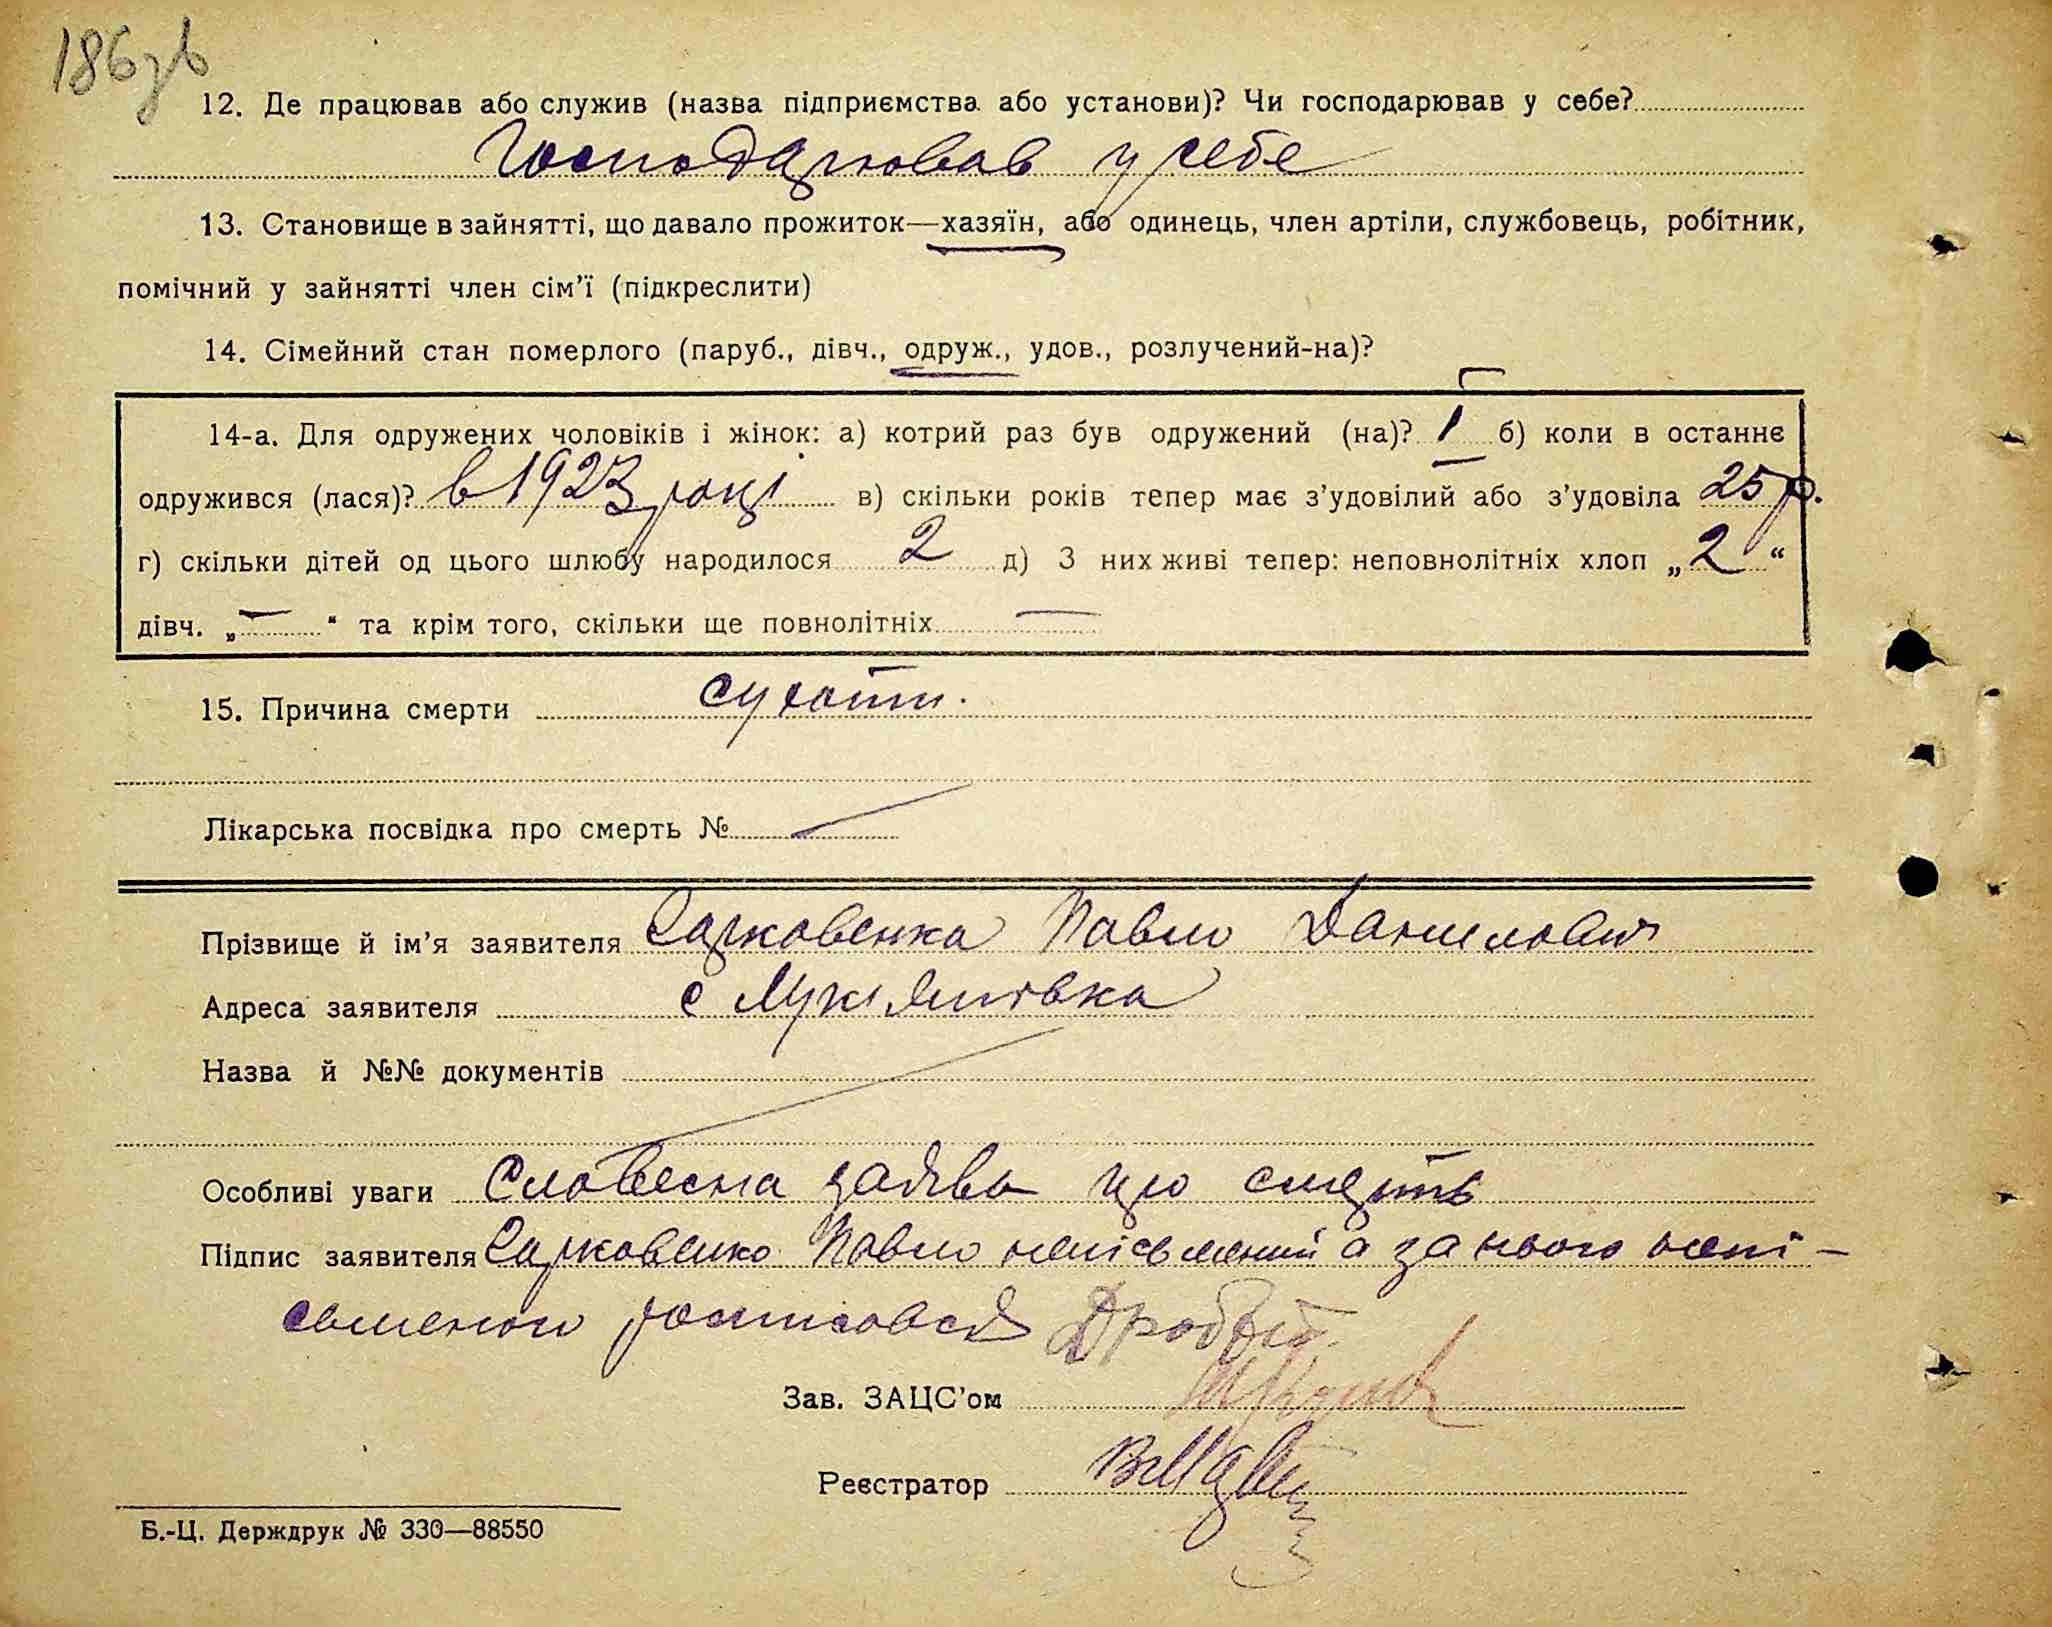 186 зв
12. Де працював або служив (назва підприємства або установи)? Чи господарював у себе?
Господарював у себе
13. Становище в зайнятті, що давало прожиток—хазяїн, або одинець, член артіли, службовець, робітник,
помічний у зайнятті член сім’ї (підкреслити)
14. Сімейний стан померлого (паруб., дівч., одруж., удов., розлучений-на)?
14-а. Для одружених чоловіків і жінок: а) котрий раз був одружений (на)? I б) коли в останнє
одружився (лася)? в 1923 році в) скільки років тепер має з’удовілий або з’удовіла 25 р.
г) скільки дітей од цього шлюбу народилося 2 д) З них живі тепер: неповнолітніх хлоп „2“
дівч. „—“ та крім того, скільки ще повнолітніх —
15. Причина смерти сухоти.
Лікарська посвідка про смерть №
Прізвище й ім’я заявителя Павло Данилович
Адреса заявителя с Лукянівка
Назва й №№ документів
Особливі уваги Словесна заява про смерть
Підпис заявителя Павло неписьмений а за нього непи-
сьменого росписовся
Зав. ЗАЦС’ом
Реєстратор
Б.-Ц. Держдрук № 330—88550